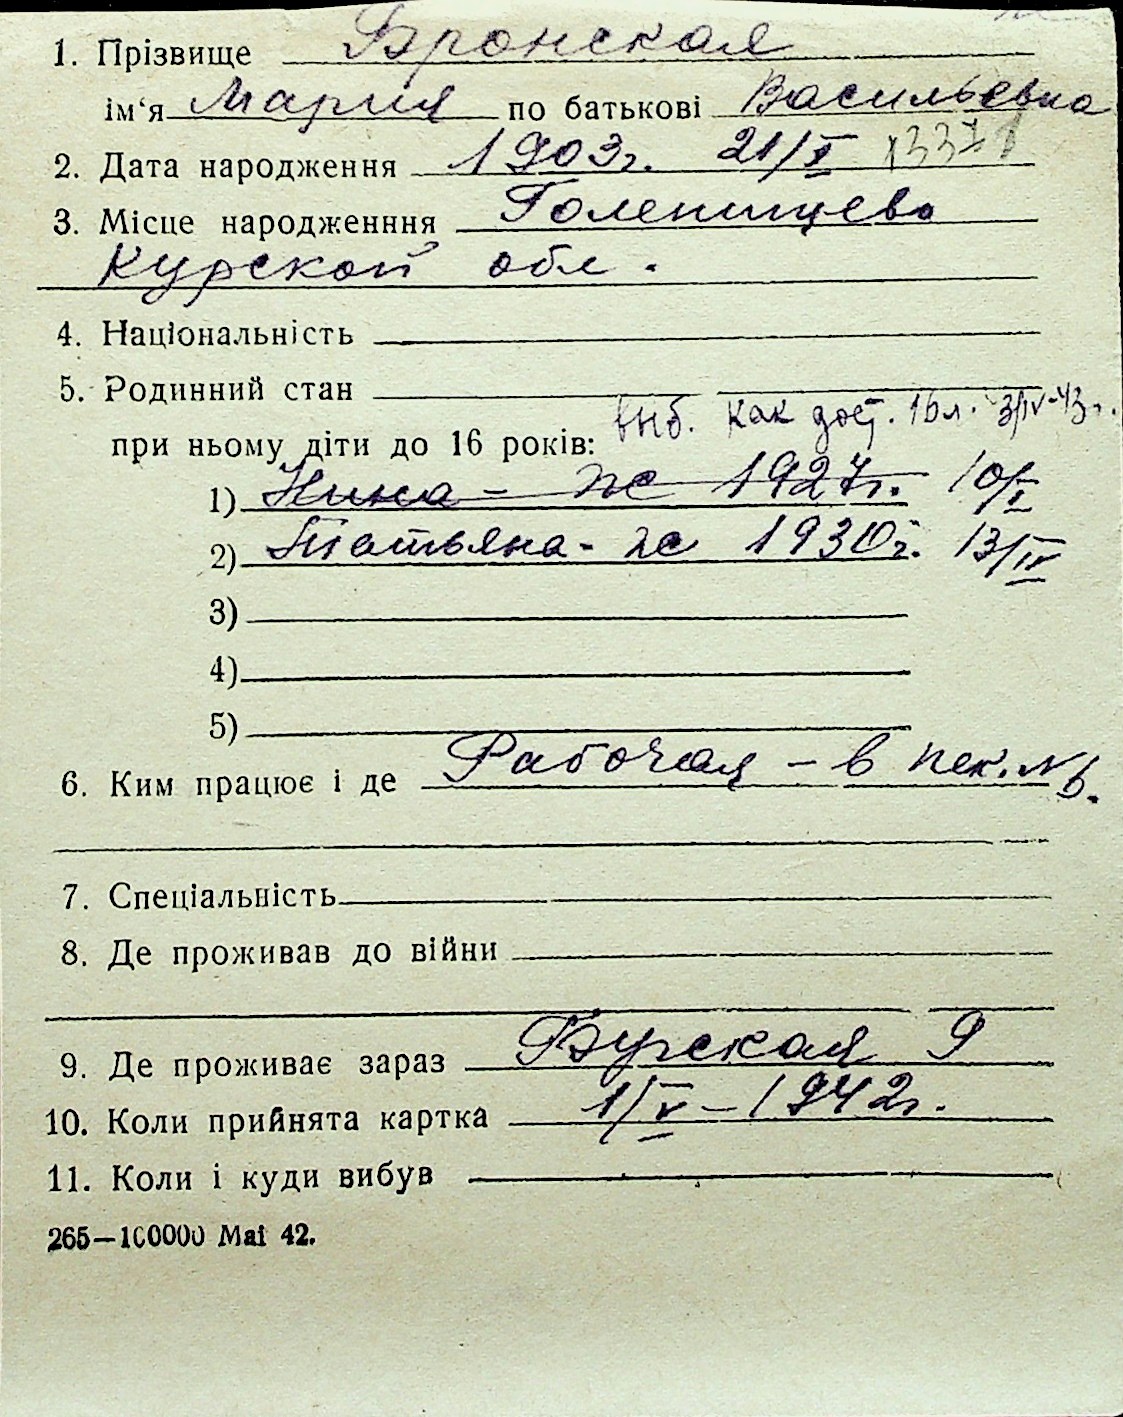 1. Прізвище Бронская
ім‘я Мария по батькові Васильевна
2. Дата народження 1903г. 21/X
3. Місце народженння Голенищево
Курской обл.
4. Національність
5. Родинний стан
выб. как дост. 16 л. 3/IV-43г.
при ньому діти до 16 років:
1) Нина - ж 1927г. 10/X
2) Татьяна - ж 1930г. 13/IV
3)
4)
5)
6. Ким працює і де Рабочая - в пек. № 6.
7. Спеціальність
8. Де проживав до війни
9. Де проживає зараз Бурская 9
10. Коли прийнята картка 1/V - 1942г.
11. Коли і куди вибув
265—100000 Mai 42.